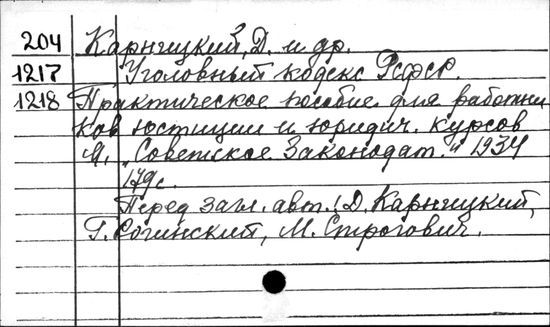 204 Карницкий, Д. и др.
1217 Уголовный кодекс РСФСР.
1218 Практическое пособие для работни
ков юстиции и юридич. курсов
М. „Советское Законодат." 1934
179с.
Перед загл. авт.: Д. Карницкий,
Г. Рогинский, М. Строгович.